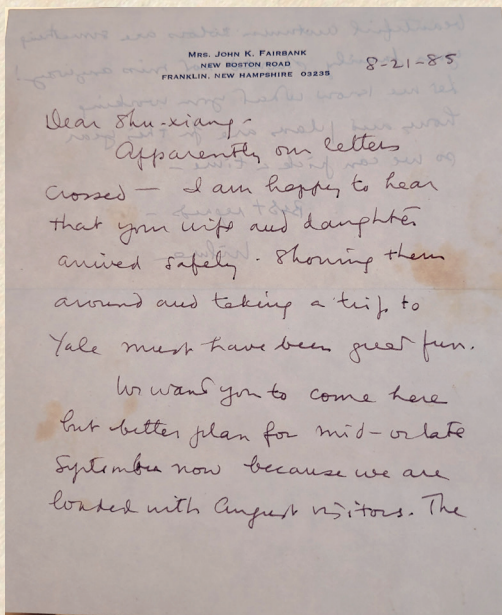 MRS. JOHN K. FAIRBANK
NEW BOSTON ROAD
FRANKLIN, NEW HAMPSHIRE 03235
8-21-85
Dear Shu-xiang -
Apparently our letters
crossed — I am happy to hear
that your wife and daughter
arrived safely. Showing them
around and taking a trip to
Yale must have been great fun.
We want you to come here
but better plan for mid- or late
September now because we are
loaded with August visitors. The